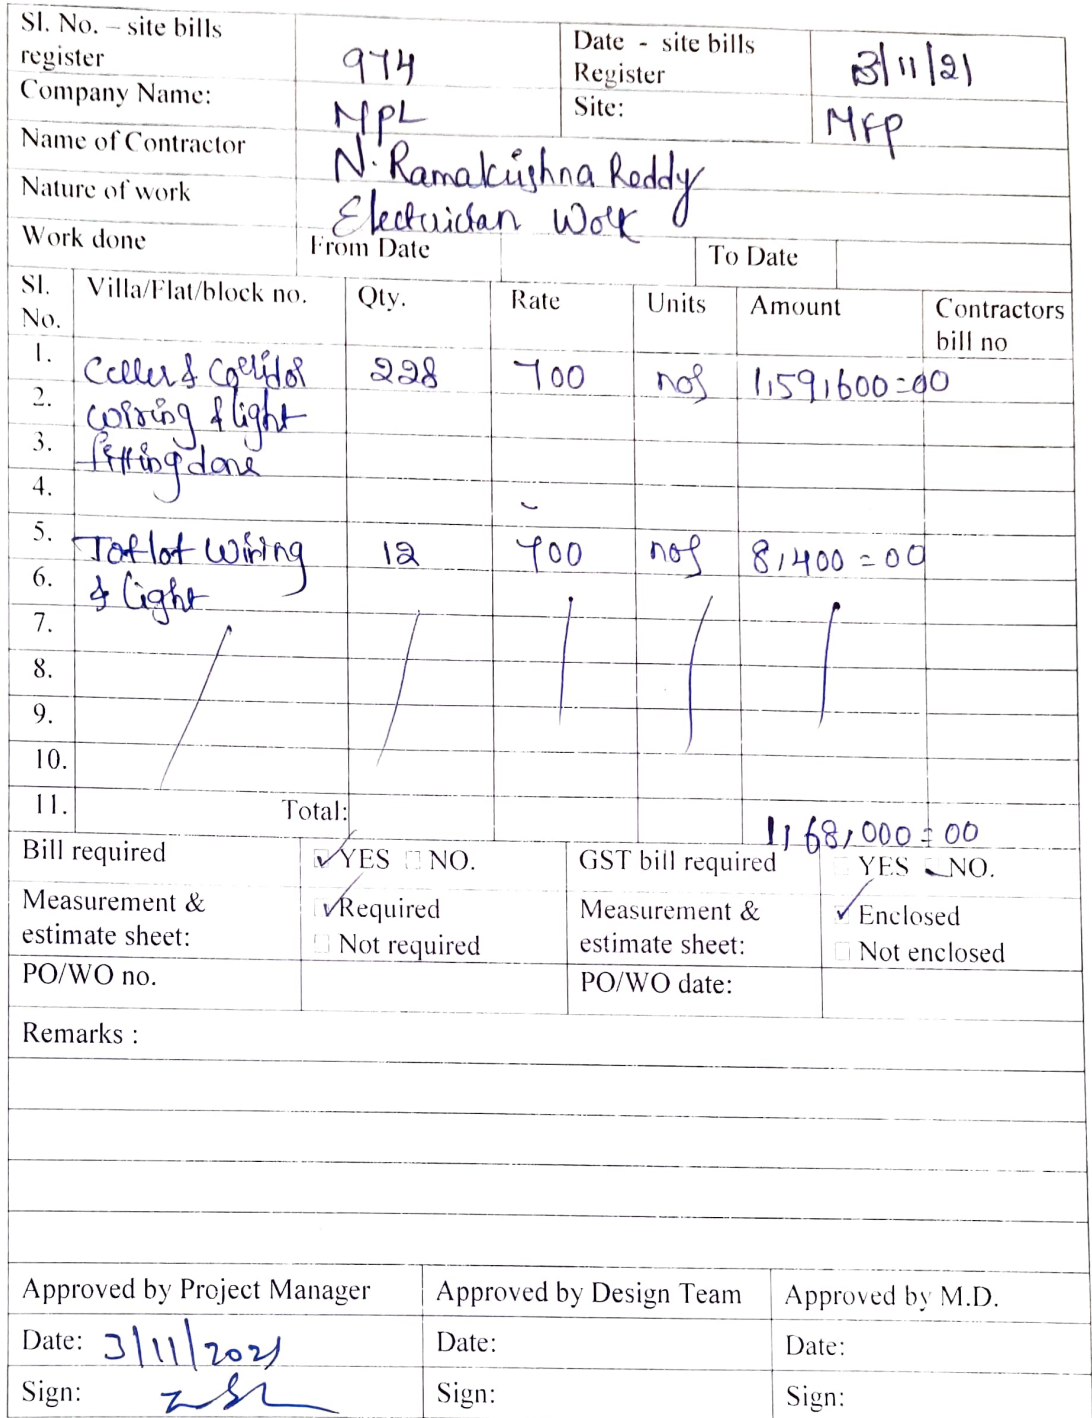 Sl. No. – site bills register 974 Date - site bills Register 3/11/21
Company Name: MPL Site: MFP
Name of Contractor N. Ramakrishna Reddy
Nature of work Electrician Work
Work done From Date To Date
Sl. No. Villa/Flat/block no. Qty. Rate Units Amount Contractors bill no
1. Celler & Corridor 228 700 nos 1,59,600=00
2. wiring & light
3. fitting done
4.
5. Totlot Wiring 12 700 nos 8,400=00
6. & light
7.
8.
9.
10.
11. Total: 1,68,000=00
Bill required YES NO. GST bill required YES NO.
Measurement & estimate sheet: Required Not required Measurement & estimate sheet: Enclosed Not enclosed
PO/WO no. PO/WO date:
Remarks :
Approved by Project Manager Approved by Design Team Approved by M.D.
Date: 3/11/2021 Date: Date:
Sign: Sign: Sign: